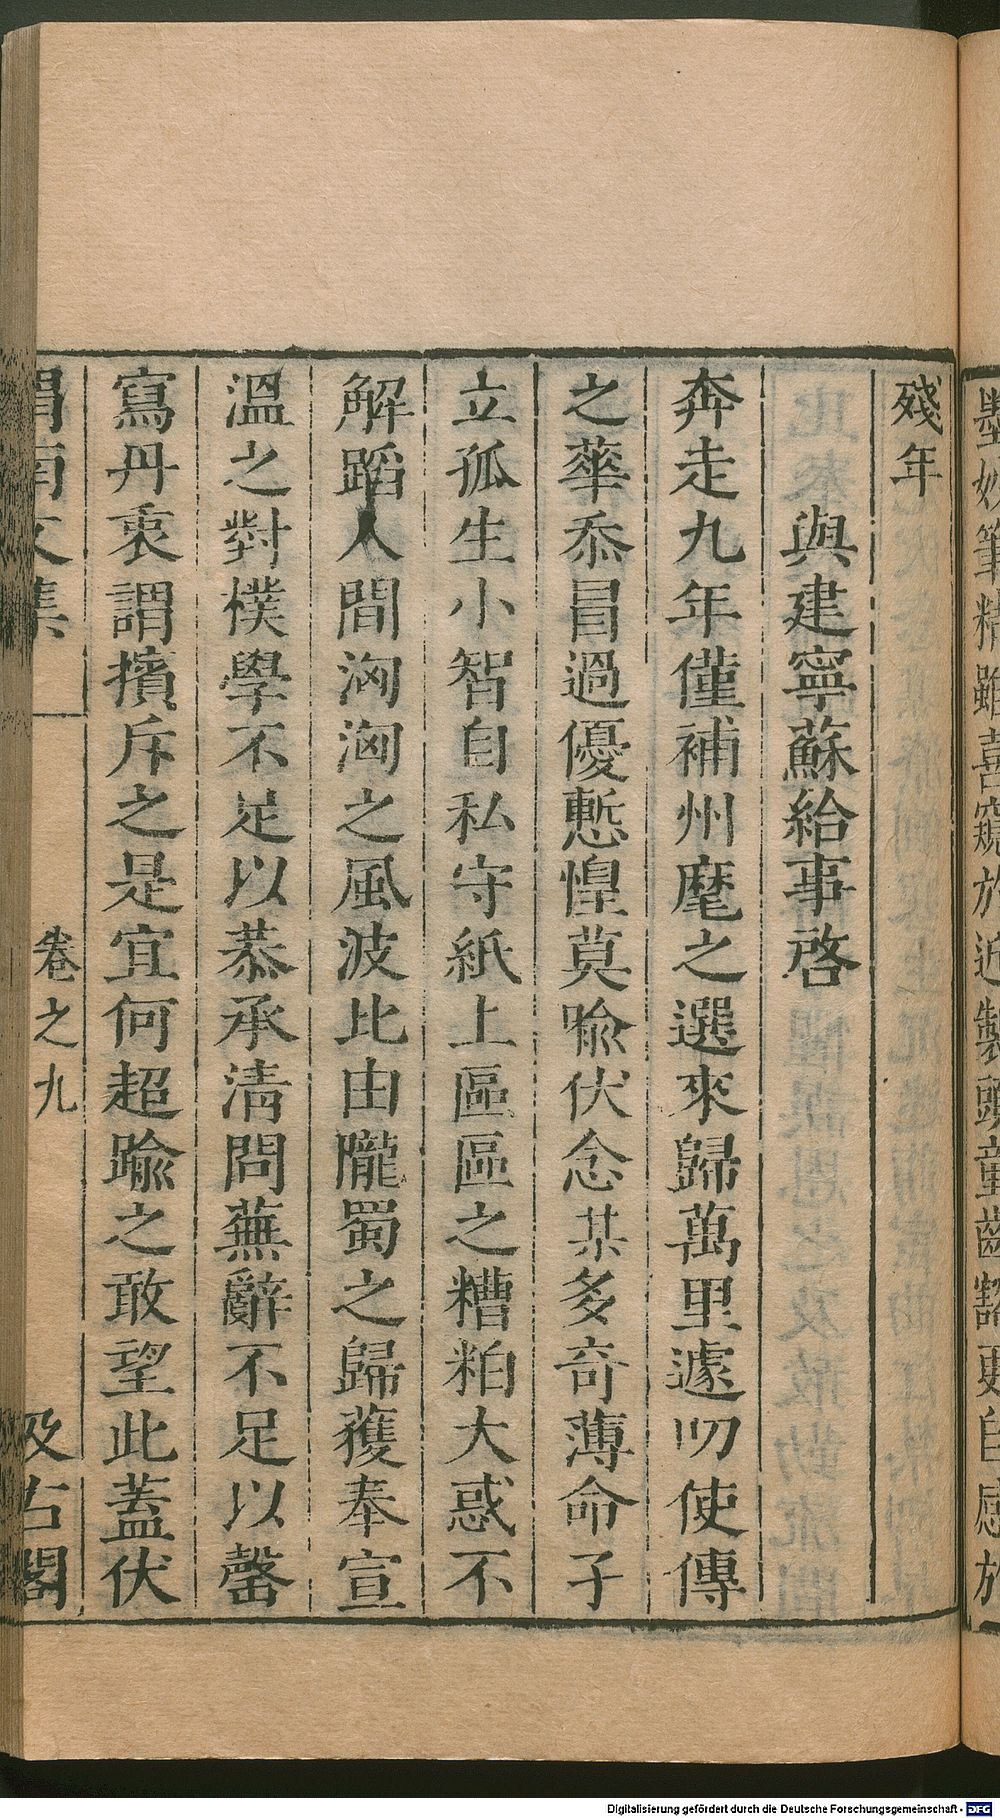 墨妙筆精雖喜窺於近製頭童齒豁更自感於
殘年
與建寧蘇給事啓
奔走九年僅補州麾之選來歸萬里遽叨使傳
之華忝冒過優慙惶莫喩伏念某多奇薄命子
立孤生小智自私守紙上區區之糟粕大惑不
解蹈人間洶洶之風波比由隴蜀之歸獲奉宣
溫之對樸學不足以恭承清問蕪辭不足以罄
寫丹衷謂擯斥之是宜何超踰之敢望此蓋伏
渭南文集 卷之九 汲古閣
Digitalisierung gefördert durch die Deutsche Forschungsgemeinschaft - DFG